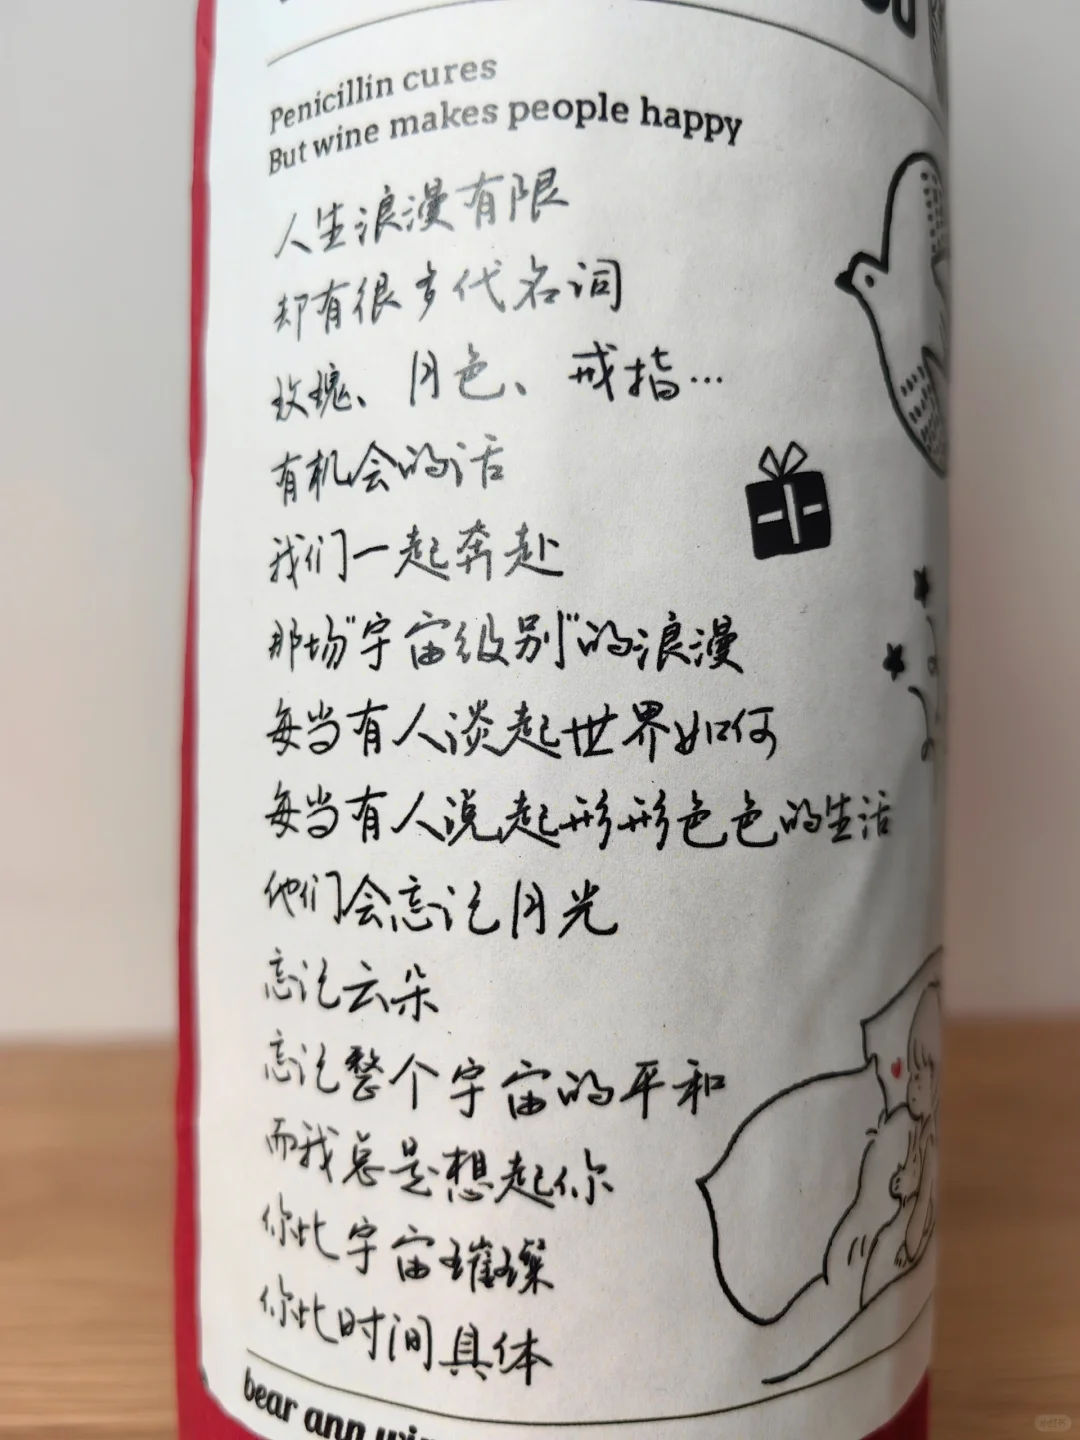 Penicillin cures
But wine makes people happy
人生浪漫有限
却有很多代名词
玫瑰、月色、戒指...
有机会的话
我们一起奔赴
那场"宇宙级别"的浪漫
每当有人谈起世界如何
每当有人说起形形色色的生活
他们会忘记月光
忘记云朵
忘记整个宇宙的平和
而我总是想起你
你比宇宙璀璨
你比时间具体
bear ann